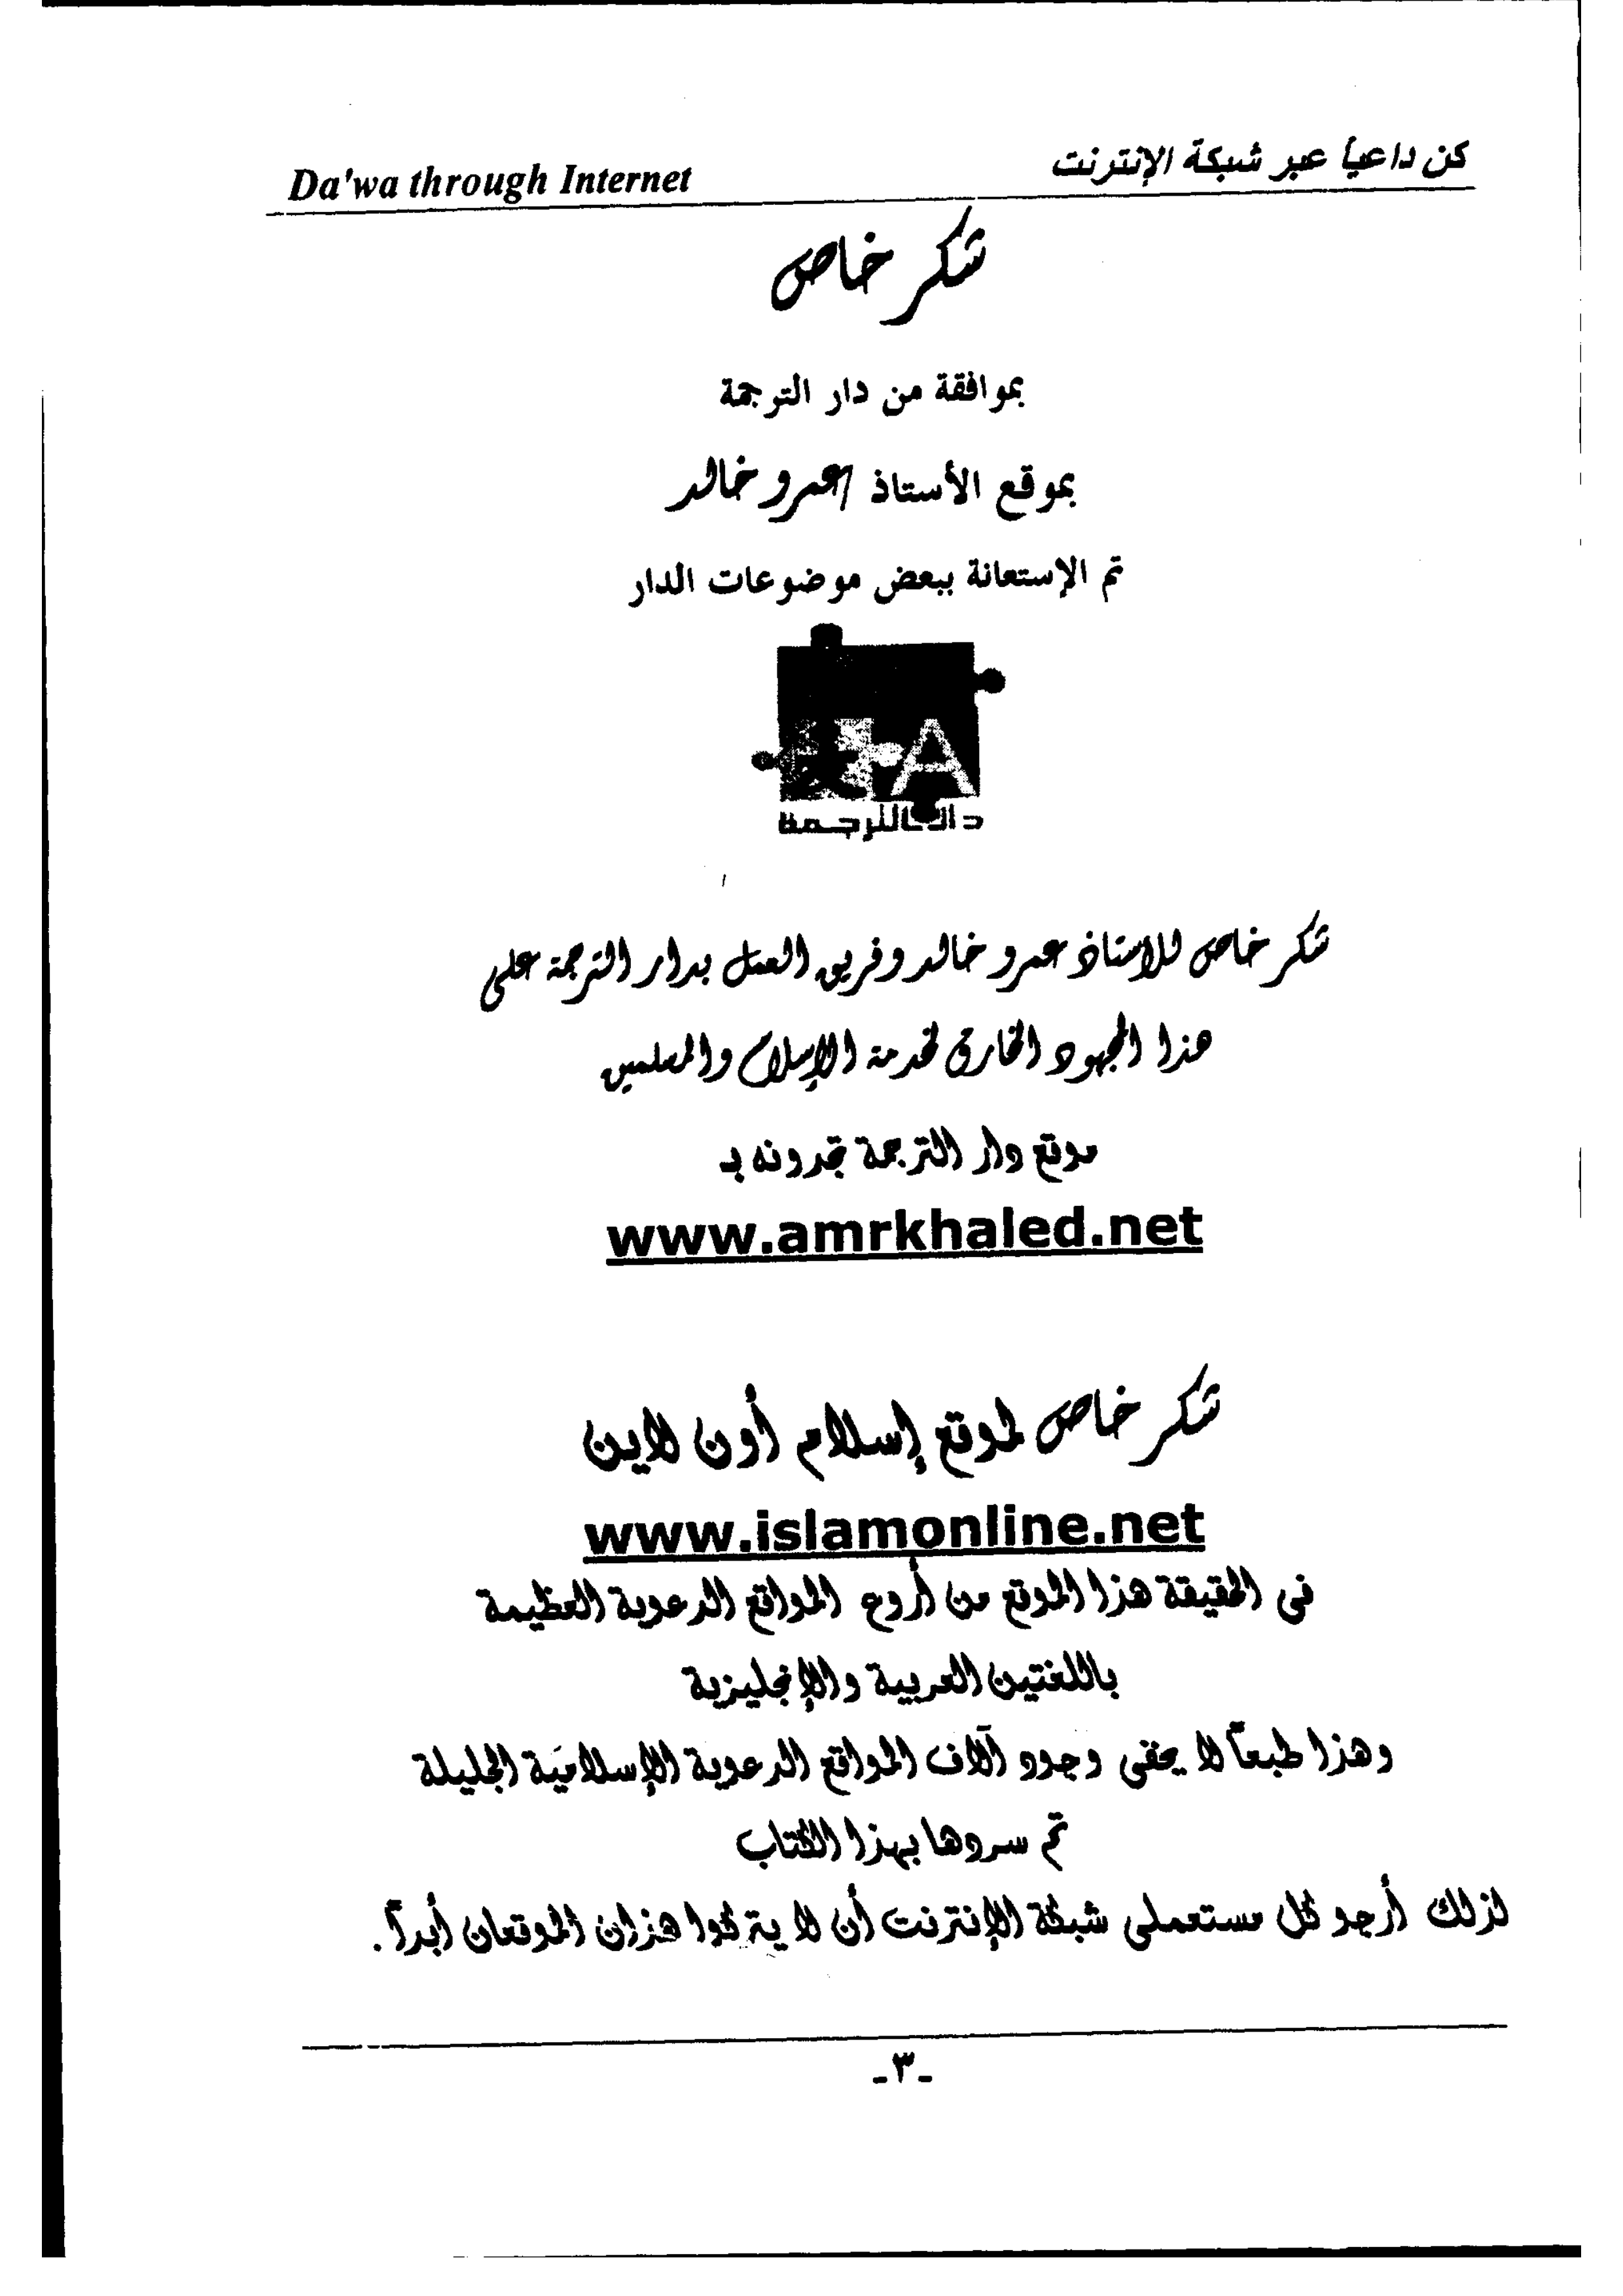 كن داعياً عبر شبكة الإنترنت
Da'wa through Internet
شكر خاص
بموافقة من دار الترجمة
بموقع الأستاذ / عمرو خالد
تم الإستعانة ببعض موضوعات الدار
A
دار الترجمة
شكر خاص للاستاذ عمرو خالد وفريق العمل بدار الترجمة على
هذا المجهود الخارق لخدمة الإسلام والمسلمين
موقع دار الترجمة تجدونه بـ
www.amrkhaled.net
شكر خاص لموقع إسلام أون لاين
www.islamonline.net
فى الحقيقة هذا الموقع من أروع المواقع الدعوية العظيمة
باللغتين العربية والإنجليزية
وهذا طبعاً لا يخفى وجود آلاف المواقع الدعوية الإسلامية الجليلة
تم سردها بهذا الكتاب
لذلك أرجو كل مستعملى شبكة الإنترنت أن لا يتركوا هذان الموقعان أبداً.
-٣-